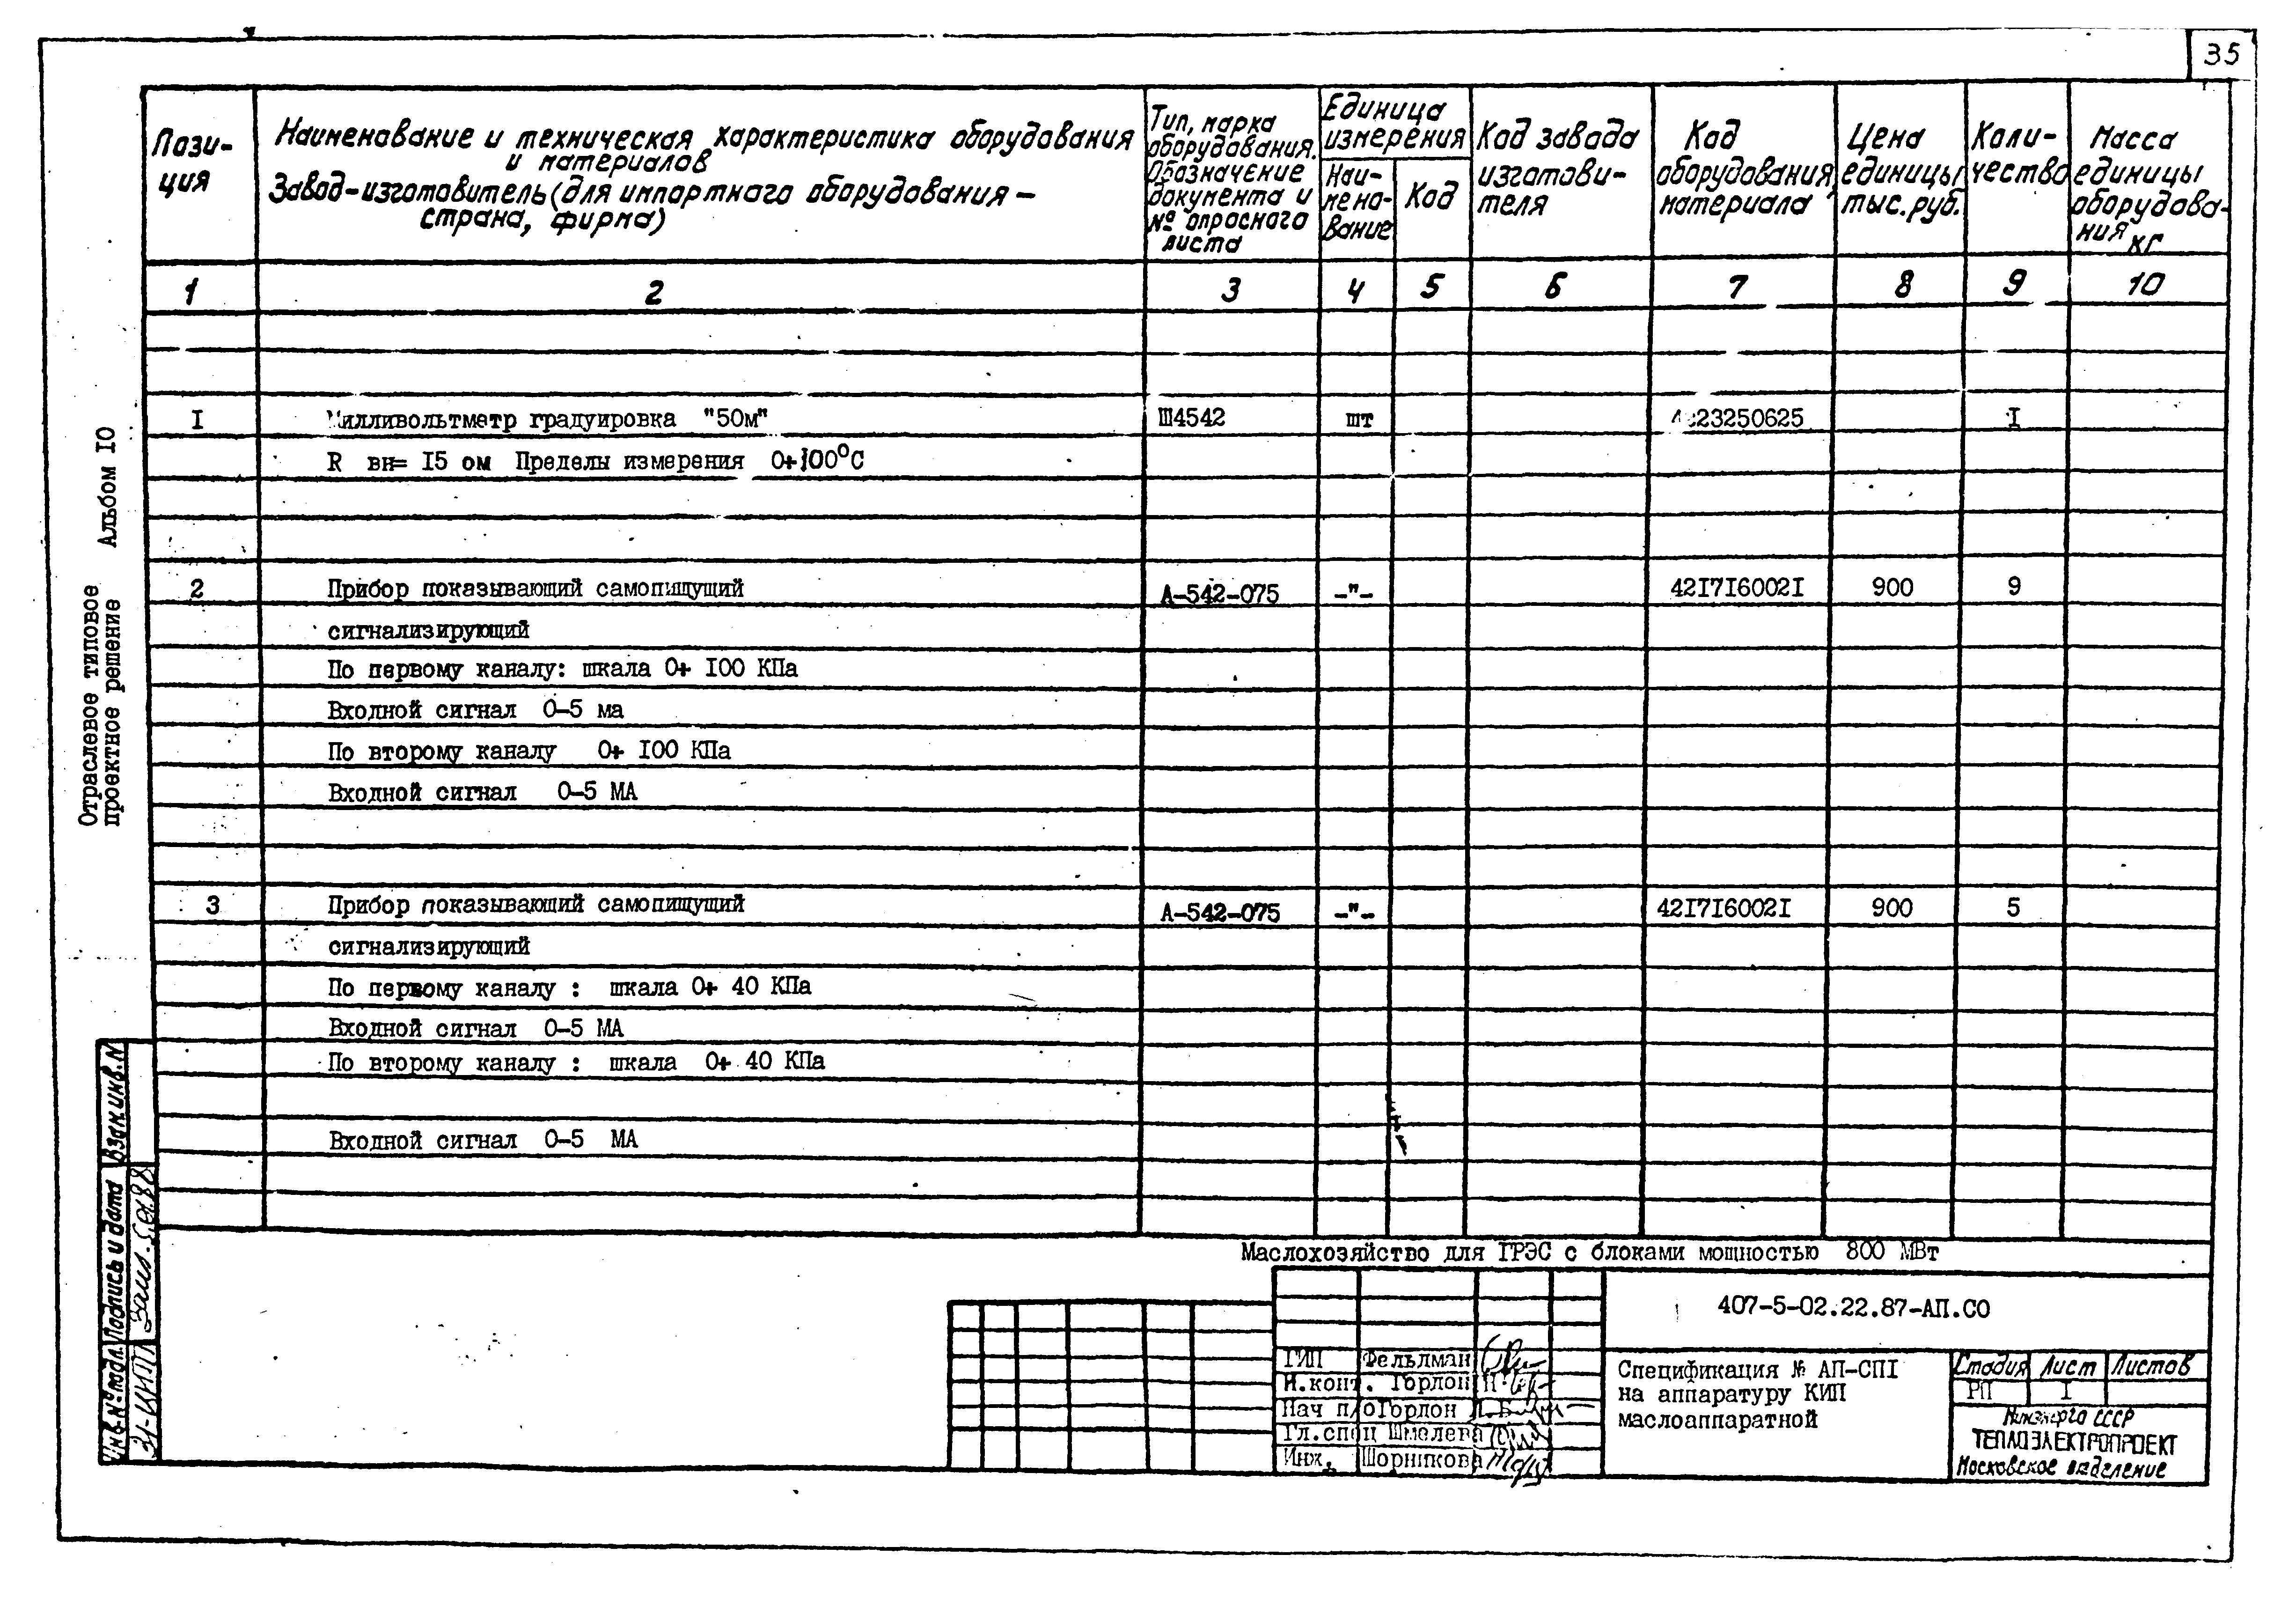 35
Пози-
ция
Наименование и техническая характеристика оборудования
и материалов
Завод-изготовитель (для импортного оборудования –
страна, фирма)
Тип, марка
оборудования.
Обозначение
документа и
№ опросного
листа
Единица
измерения
Наи-
мено-
вание
Код
Код завода
изготови-
теля
Код
оборудования,
материала
Цена
единицы
тыс.руб.
Коли-
чество
Масса
единицы
оборудова-
ния кг
1 2 3 4 5 6 7 8 9 10
I Милливольтметр градуировка "50м" Ш4542 шт 23250625 I
R вн= I5 ом Пределы измерения 0+100°С
2 Прибор показывающий самопищущий А-542-075 -"- 42I7I6002I 900 9
сигнализирующий
По первому каналу: шкала 0+ I00 КПа
Входной сигнал 0-5 ма
По второму каналу 0+ I00 КПа
Входной сигнал 0-5 МА
3 Прибор показывающий самопищущий А-542-075 -"- 42I7I6002I 900 5
сигнализирующий
По первому каналу : шкала 0+ 40 КПа
Входной сигнал 0-5 МА
По второму каналу : шкала 0+ 40 КПа
Входной сигнал 0-5 МА
Отраслевое типовое
проектное решение Альбом IO
Взам.инв.N
Подпись и дата
Инв.№ подл.
Маслохозяйство для ГРЭС с блоками мощностью 800 МВт
407-5-02.22.87-АП.СО
ГИП Фельдман
Н.конт. Гордон
Нач п/о Гордон
Гл.спец Шмелева
Инж. Шорникова
Спецификация № АП-СПI
на аппаратуру КИП
маслоаппаратной
Стадия Лист Листов
РП I
Минэнерго СССР
ТЕПЛОЭЛЕКТРОПРОЕКТ
Московское отделение